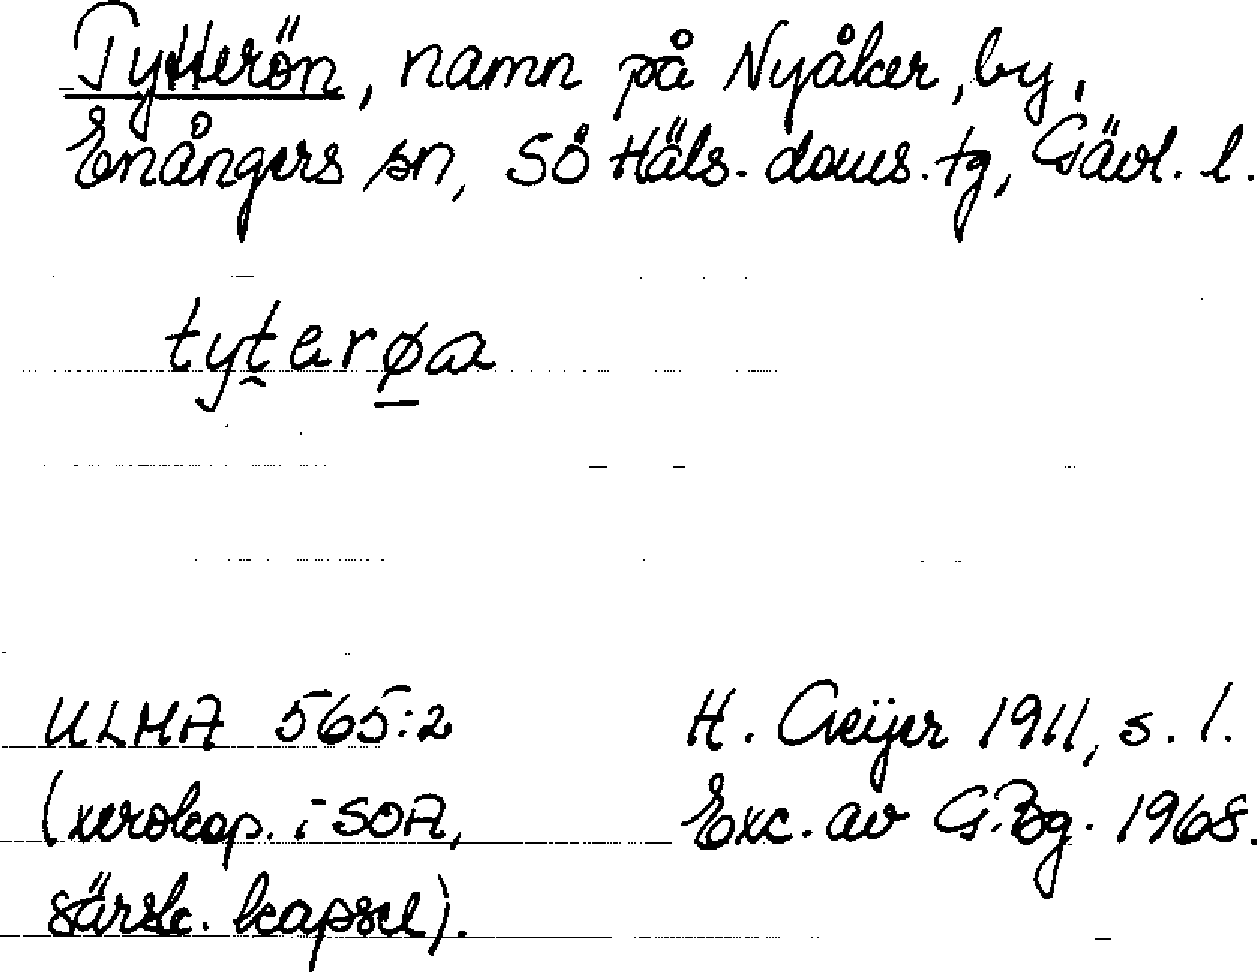 Tytterön, namn på Nyåker, by,
Enångers sn, SÖ Häls. doms. tg, Gävl. l.
tyterøa
ULMA 565:2
(xerokop. i SOA,
särsk. kapsel).
H. Geijer 1911, s. 1.
Exc. av G.Bg. 1968.